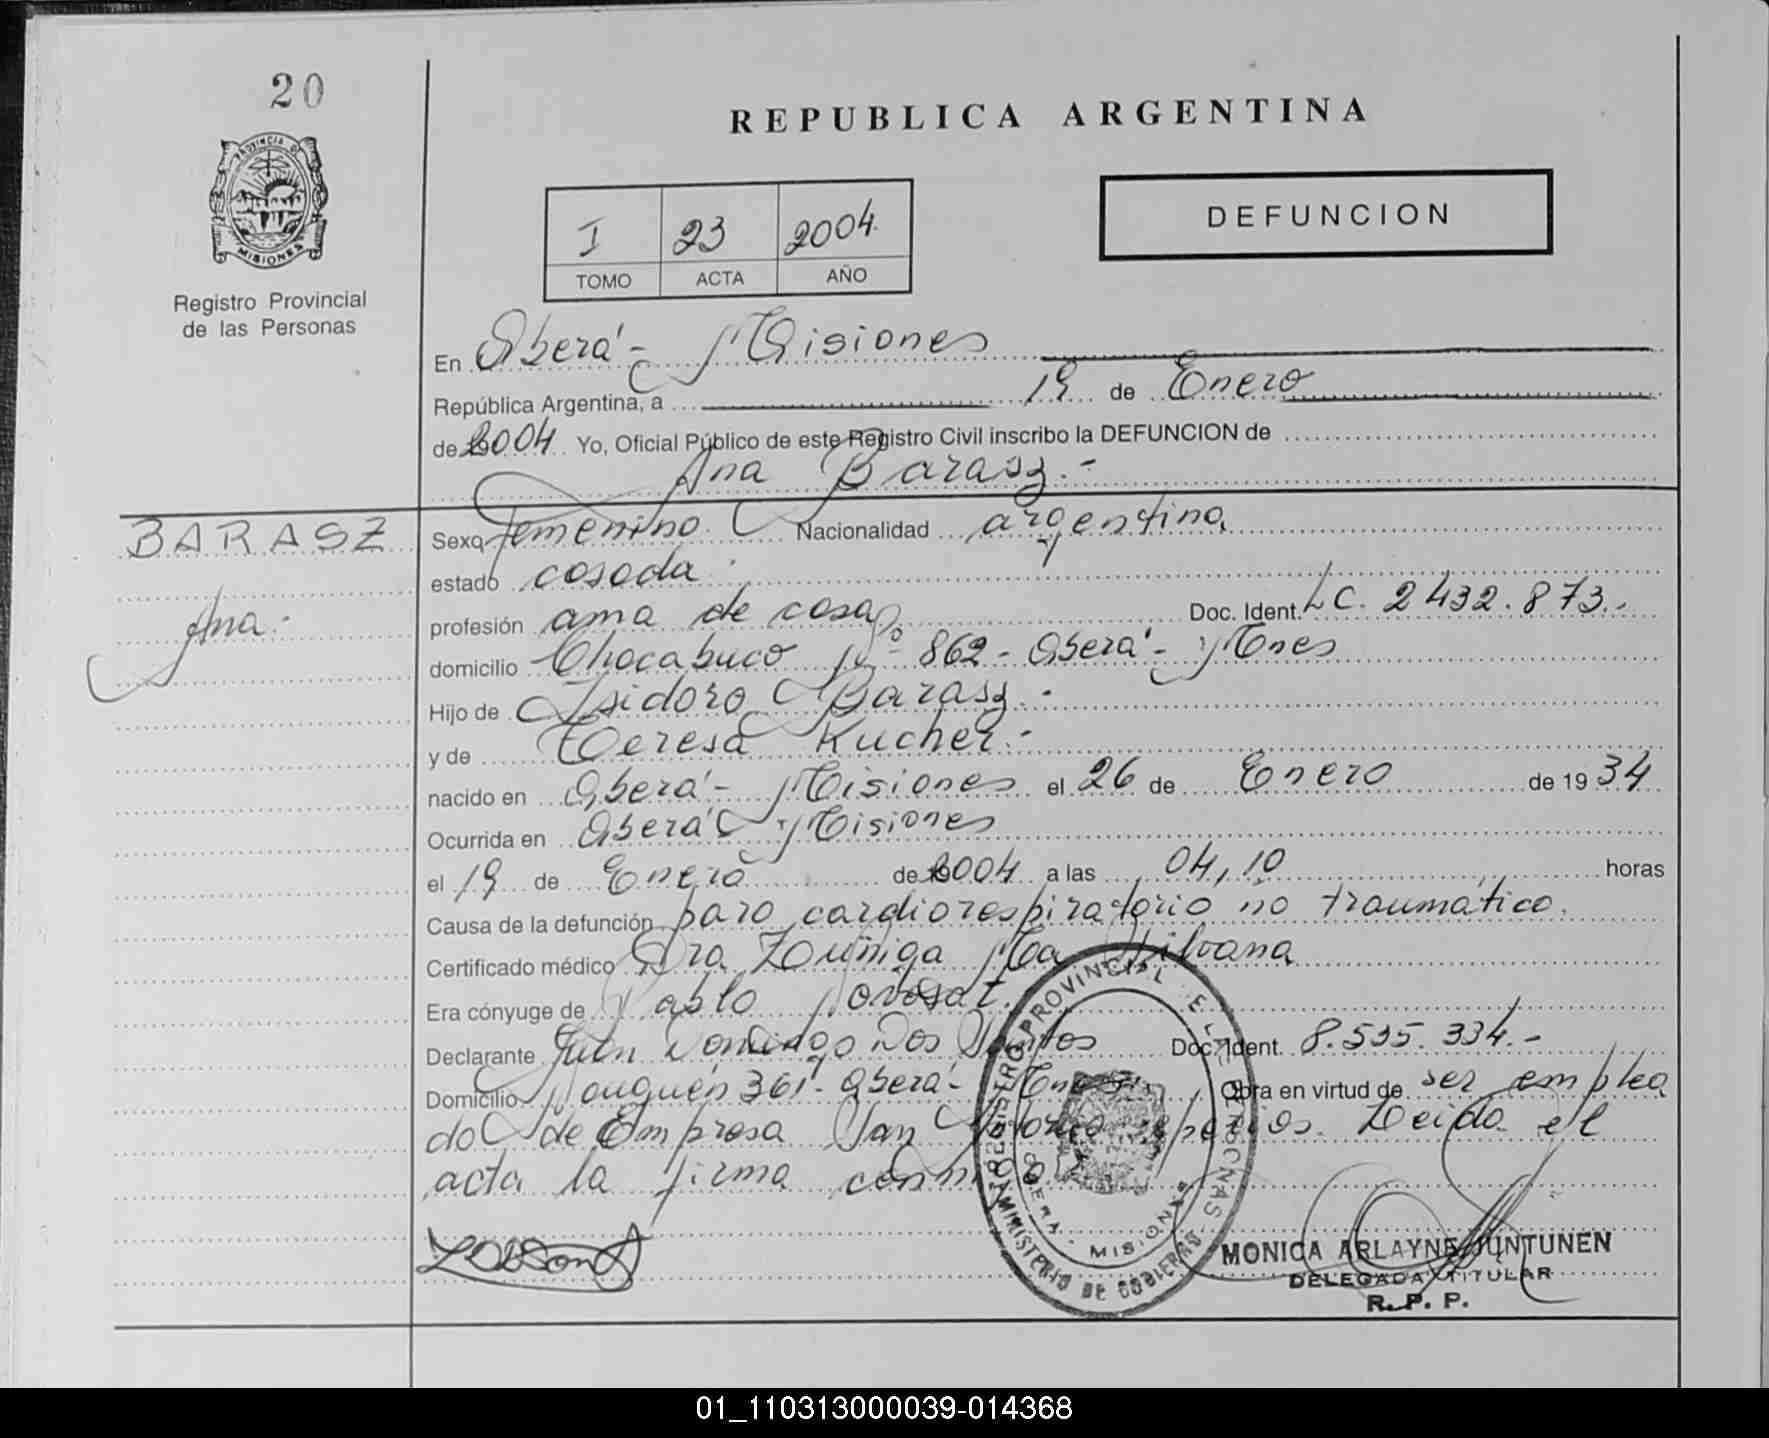 20
PROVINCIA DE
MISIONES
Registro Provincial
de las Personas
REPUBLICA ARGENTINA
I 23 2004
TOMO ACTA AÑO
DEFUNCION
En Oberá - Misiones
República Argentina, a 19 de Enero
de 2004 Yo, Oficial Público de este Registro Civil inscribo la DEFUNCION de
Ana Barasz.-
BARASZ
Ana.-
Sexo femenino Nacionalidad argentina
estado casada
profesión ama de casa Doc. Ident. L C. 2432.873.-
domicilio Chacabuco Nº 862 - Oberá - Mnes
Hijo de Isidoro Barasz.-
y de Teresa Kucher.-
nacido en Oberá - Misiones el 26 de Enero de 1934
Ocurrida en Oberá Misiones
el 19 de Enero de 2004 a las 04,10 horas
Causa de la defunción paro cardiorespiratorio no traumático.
Certificado médico Dra Zuñiga Ma Silvana
Era cónyuge de Pablo
Declarante Juan Domingo Dos Santos Doc. Ident. 8.535.334.-
Domicilio Neuquén 361 - Oberá - Mnes Obra en virtud de ser emplea
do de Empresa San Sepelios. Leida el
acta la firma conmigo
REGISTRO PROVINCIAL DE LAS PERSONAS
OBERA - MISIONES
MINISTERIO DE GOBIERNO
MONICA ARLAYNE JUNTUNEN
DELEGADA TITULAR
R. P. P.
01_110313000039-014368